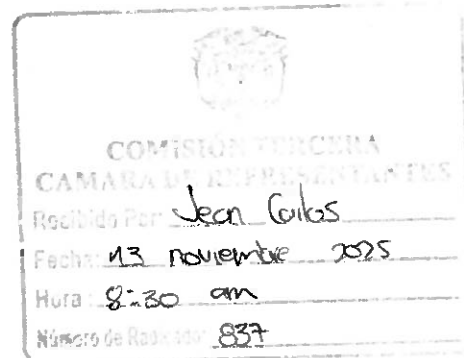 COMISIÓN TERCERA
CAMARA DE REPRESENTANTES
Recibido Por: Jean Carlos
Fecha: 13 noviembre 2025
Hora: 8:30 am
Número de Radicado: 837